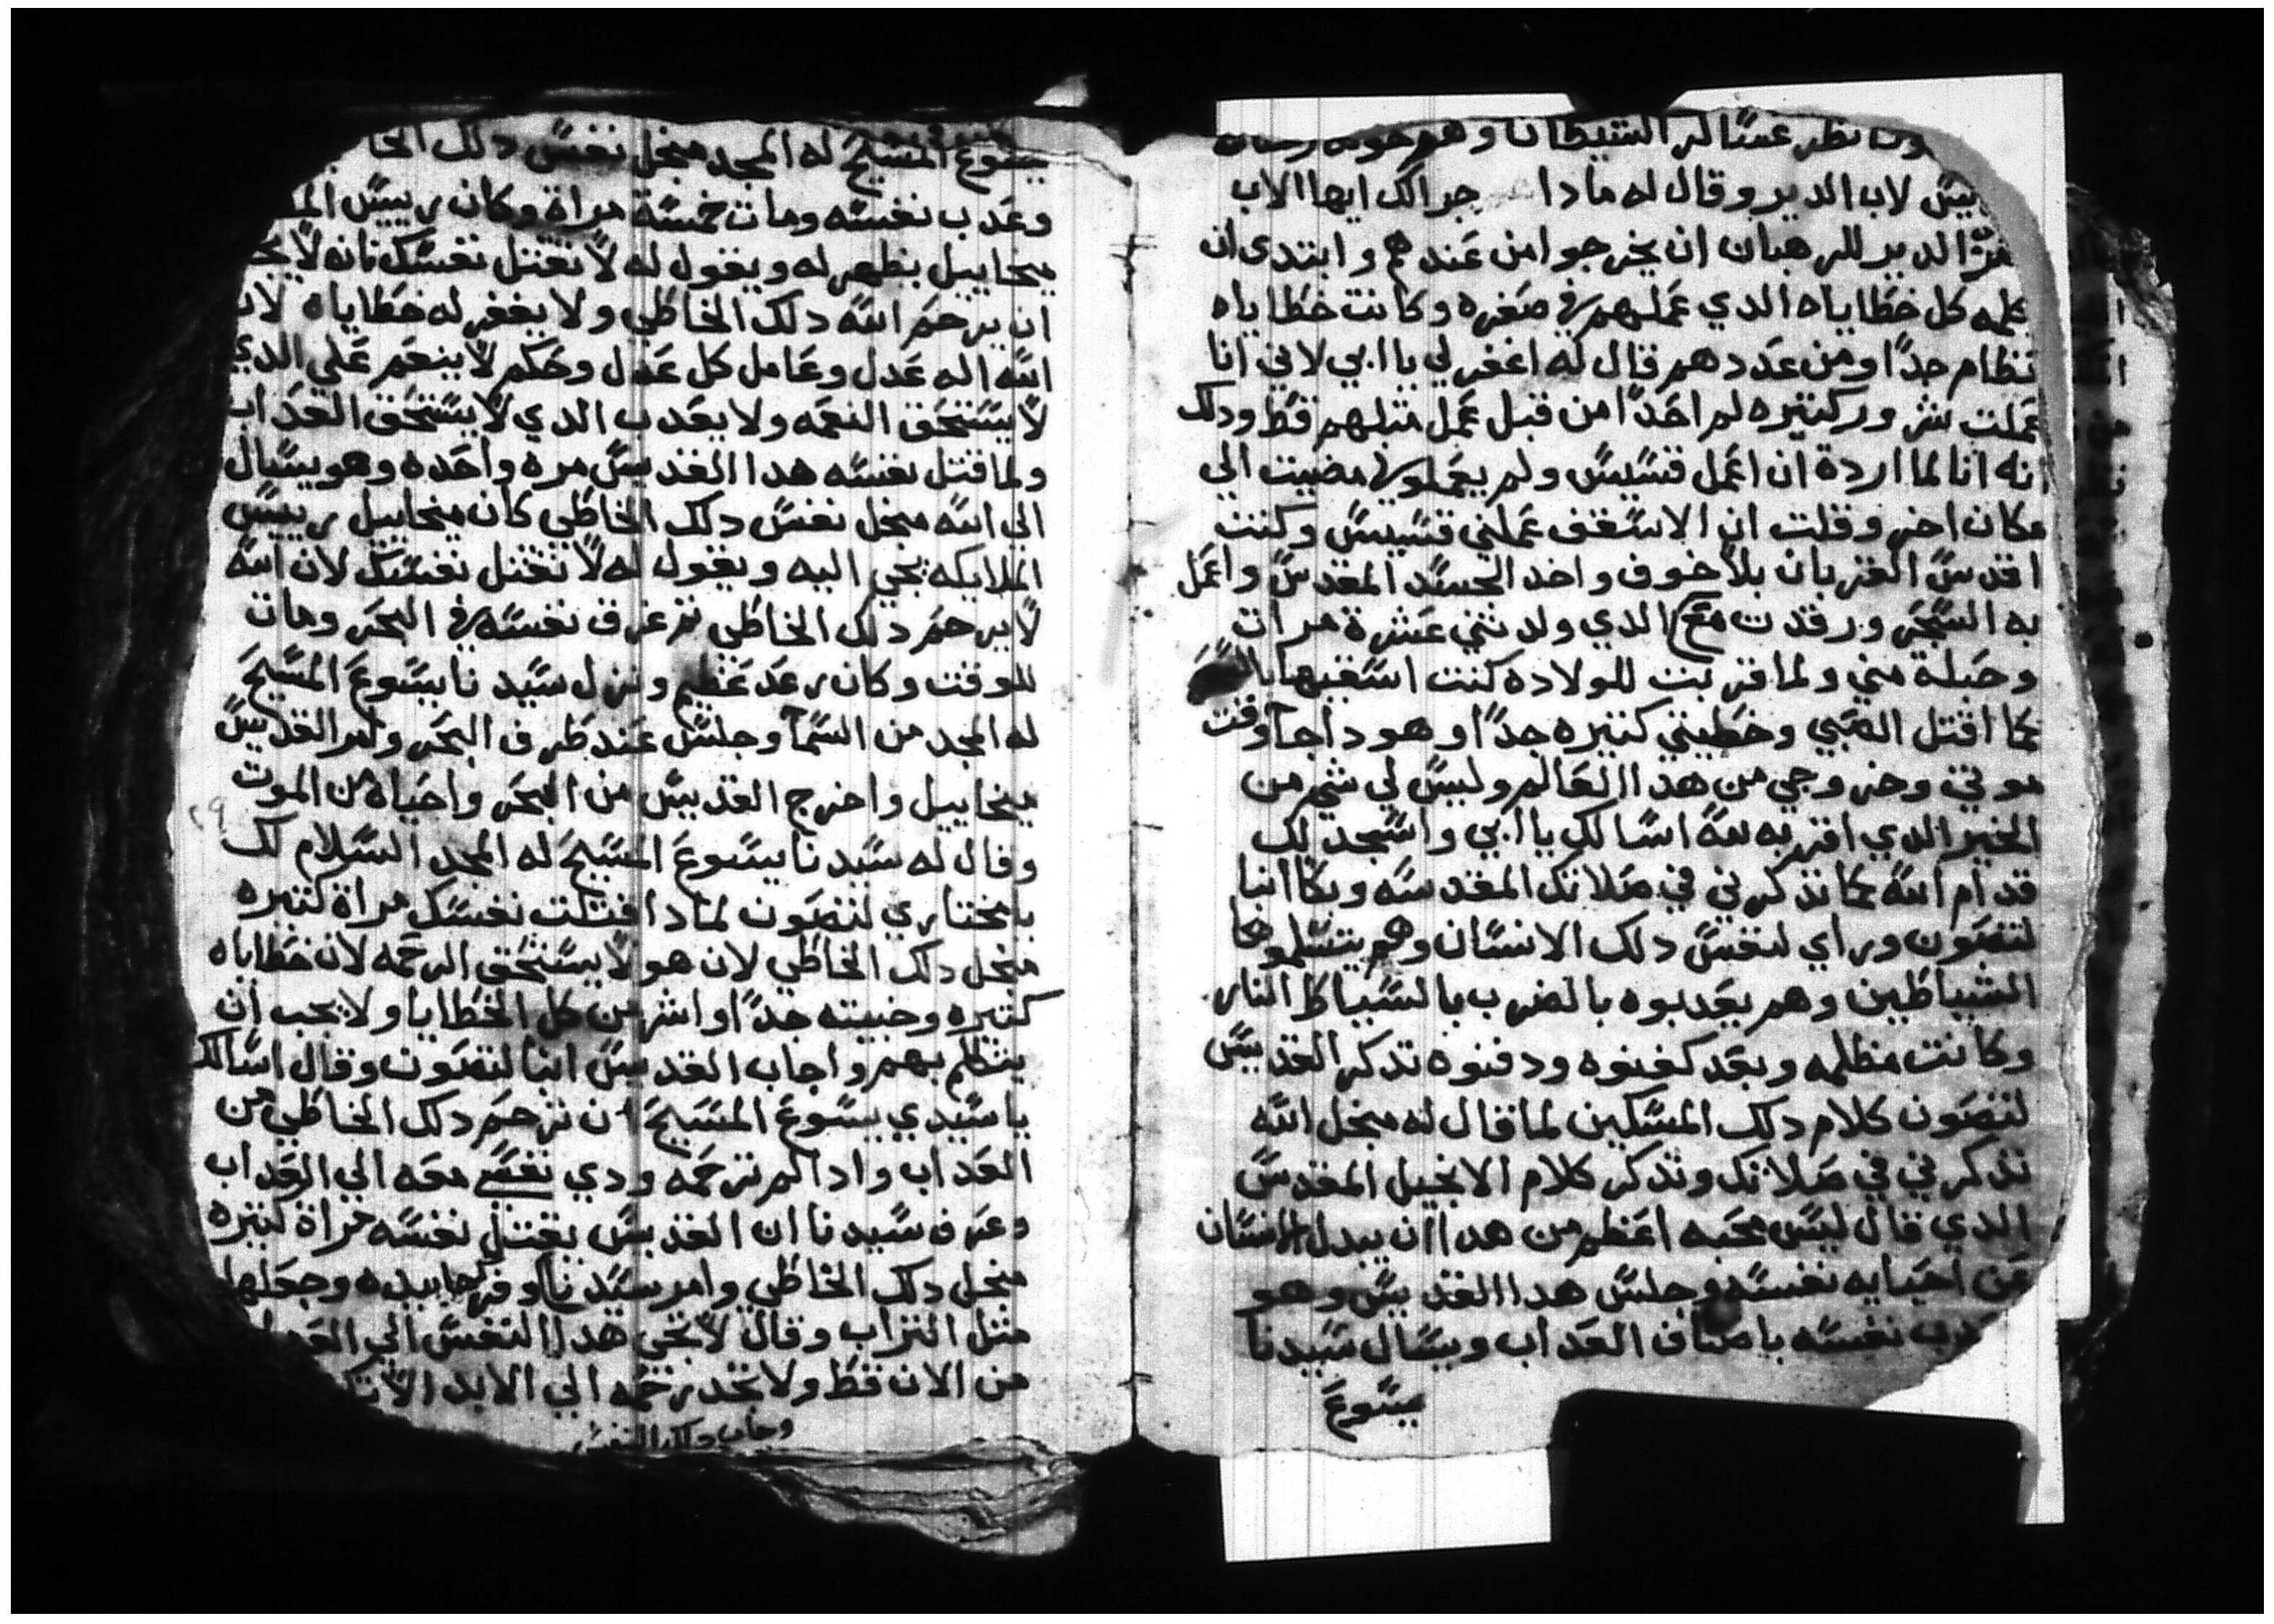 ونا نظر عسَّاكر الشيطان وهم حوله
يسّ لاب الدير وقال له مادا جرالك ايها الاب
الدير للرهبان ان يخرجوا من عَندهم وابتدي ان
علمه كل خطاياه الدي عَملهم في صغره وكانت خطاياه
تظام جدًا ومن عَددهم قال له اغفر لي يا ابي لاني انا
عَملت شرور كتيره لم احَدًا من قبل عَمل متلهم قط ودلك
انه انا لما اردة ان اعَمل قسّيسّ ولم يعَملوني مضيت الي
مكان اخر وقلت ان الاسّقف عَملني قسّيسّ وكنت
اقدسّ القربان بلا خوف واخد الجسّد المقدسّ واعَمل
به السّحَر ورقدت مع الدي ولدتني عَشرة مرات
وحَبلة مني ولما قربت للولاده كنت اسّقيها
كما اقتل الصَبي وخطيتي كتيره جدًا وهودا جا وقت
موتي وخروجي من هدا العَالم وليسّ لي شي من
الخير الدي اقتربه لله اسّالك يا ابي واسّجد لك
قدام الله كما تدكرني في صَلاتك المقدسّه وبكا انبا
لتصَون وراي لنفسّ دلك الانسّان وهم يتسّلموها
الشياطين وهم يعَدبوه بالضرب بالسّياط النار
وكانت مظلمه وبعَد كفنوه ودفنوه تدكر القديسّ
لتصَون كلام دلك المسّكين لما قال له منجل الله
تدكرني في صَلاتك وتدكر كلام الانجيل المقدسّ
الدي قال ليسّ محَبه اعَظم من هدا ان يبدل الانسّان
عَن احَبايه نفسّه وجلسّ هدا القديسّ وهو
نفسّه باصناف العَداب ويسّال سّيدنا
يسّوعَ
يسّوعَ المسّيحَ له المجد منجل نفسّ دلك الخا
وعَدب نفسّه ومات خمسّة مراة وكان رييسّ الم
ميخاييل يظهر له ويقول له لا تقتل نفسّك فانه لا يج
ان يرحَم الله دلك الخاطي ولا يغفر له خطاياه لان
الله اله عَدل وعَامل كل عَدل وحَكم لا ينعَم عَلي الدي
لا يسّتحَق النعَمه ولا يعَدب الدي لا يسّتحَق العَداب
ولما قتل نفسّه هدا القديسّ مره واحَده وهو يسّال
الي الله منجل نفسّ دلك الخاطي كان ميخاييل رييسّ
الملايكه يجي اليه ويقول له لا تقتل نفسّك لان الله
لا يرحَم دلك الخاطي تم غرق نفسّه في البحَر ومات
للوقت وكان رعَد عَظيم ونزل سّيدنا يسّوعَ المسّيحَ
له المجد من السّما وجلسّ عَند طرف البحَر وامر القديسّ
ميخاييل واخرج القديسّ من البحَر واحَياه من الموت
وقال له سّيدنا يسّوعَ المسّيحَ له المجد السّلام لك
يا مختاري لتصَون لمادا قتلت نفسّك مراة كتيره
منجل دلك الخاطي لان هو لا يسّتحَق الرحَمه لان خطاياه
كتيره وخبيته جدًا واشر من كل الخطايا ولا يجب ان
يتظلم بهم واجاب القديسّ انبا لتصَون وقال اسّالك
يا سّيدي يسّوعَ المسّيحَ ان ترحَم دلك الخاطي من
العَداب وادا لم ترحَمه ودي نفسّي معَه الي العَداب
وعَرف سّيدنا ان القديسّ يقتل نفسّه مراة كتيره
منجل دلك الخاطي وامر سّيدنا وفركها بيده وجعَلها
متل التراب وقال لا تجي هدا النفسّ الي العَداب
من الان قط ولا تجد رحَمه الي الابد
وجاب دلك النفسّ